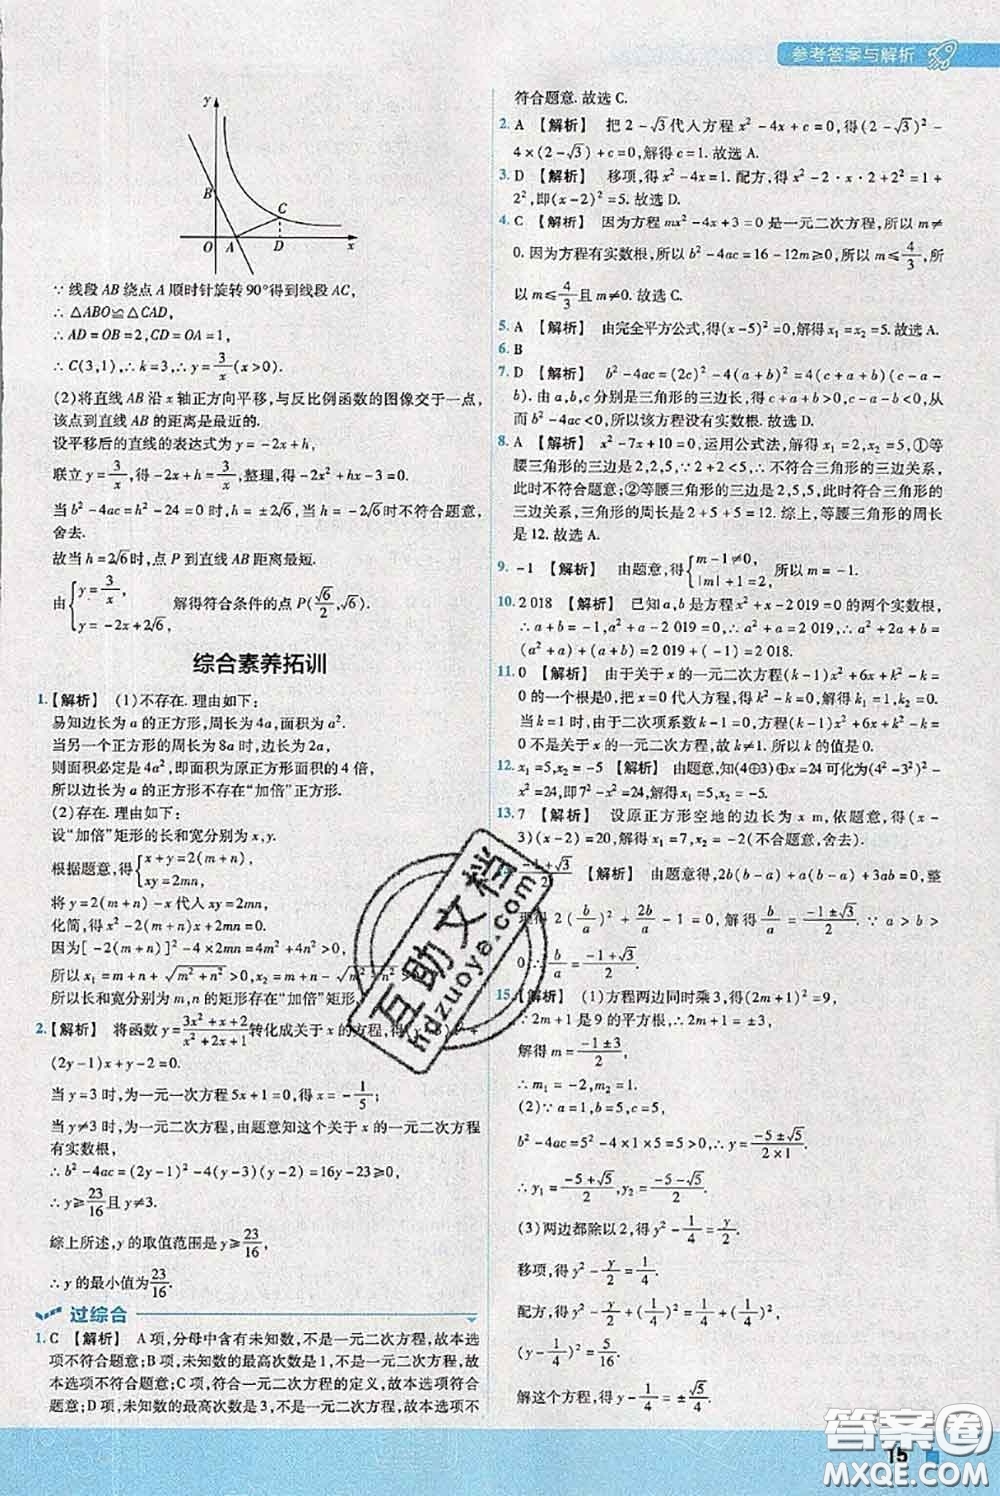 参考答案与解析
y
B
C
O
A
D
x
∵线段AB绕点A顺时针旋转90°得到线段AC,
∴△ABO≌△CAD,
∴AD=OB=2,CD=OA=1,
∴C(3,1),∴k=3,∴y=3/x(x>0).
(2)将直线AB沿x轴正方向平移,与反比例函数的图像交于一点,
该点到直线AB的距离是最近的.
设平移后的直线的表达式为y=-2x+h,
联立y=3/x,得-2x+h=3/x,整理,得-2x²+hx-3=0.
当b²-4ac=h²-24=0时,h=±2√6,当h=-2√6时不符合题意,
舍去.
故当h=2√6时,点P到直线AB距离最短.
由{y=3/x, y=-2x+2√6, 解得符合条件的点P(√6/2,√6).
综合素养拓训
1.【解析】 (1)不存在.理由如下:
易知边长为a的正方形,周长为4a,面积为a².
当另一个正方形的周长为8a时,边长为2a,
则面积必定是4a²,即面积为原正方形面积的4倍,
所以边长为a的正方形不存在“加倍”正方形.
(2)存在.理由如下:
设“加倍”矩形的长和宽分别为x,y.
根据题意,得{x+y=2(m+n), xy=2mn,
将y=2(m+n)-x代入xy=2mn,
化简,得x²-2(m+n)x+2mn=0.
因为[-2(m+n)]²-4×2mn=4m²+4n²>
所以x₁=m+n+√(m²+n²)>0,x₂=m+n-√(m²+n²
所以长和宽分别为m,n的矩形存在“加倍”矩形
2.【解析】 将函数y=(3x²+x+2)/(x²+2x+1)转化成关于x的方程,得(y-3)x²+
(2y-1)x+y-2=0.
当y=3时,为一元一次方程5x+1=0,得x=-1/5;
当y≠3时,为一元二次方程,由题意知这个关于x的一元二次方程
有实数根,
∴b²-4ac=(2y-1)²-4(y-3)(y-2)=16y-23≥0,
∴y≥23/16且y≠3.
综上所述,y的取值范围是y≥23/16,
∴y的最小值为23/16.
过综合
1. C 【解析】 A项,分母中含有未知数,不是一元二次方程,故本选
项不符合题意;B项,未知数的最高次数是1,不是一元二次方程,故
本选项不符合题意;C项,符合一元二次方程的定义,故本选项符合
题意;D项,未知数的最高次数是3,不是一元二次方程,故本选项不
符合题意.故选C.
2. A 【解析】 把2-√3代入方程x²-4x+c=0,得(2-√3)²-
4×(2-√3)+c=0,解得c=1.故选A.
3. D 【解析】 移项,得x²-4x=1.配方,得x²-2·x·2+2²=1+
2²,即(x-2)²=5.故选D.
4. C 【解析】 因为方程mx²-4x+3=0是一元二次方程,所以m≠
0.因为方程有实数根,所以b²-4ac=16-12m≥0,所以m≤4/3,所
以m≤4/3且m≠0.故选C.
5. A 【解析】 由完全平方公式,得(x-5)²=0,解得x₁=x₂=5.故选A.
6. B
7. D 【解析】 b²-4ac=(2c)²-4(a+b)²=4(c+a+b)(c-a-
b).由a,b,c分别是三角形的三边长,得c+a+b>0,c-a-b<0,
b²-4ac<0,所以该方程没有实数根.故选D.
8. A 【解析】 x²-7x+10=0,运用公式法,解得x₁=2,x₂=5,①等
腰三角形的三边是2,2,5,∵2+2<5,∴不符合三角形的三边关系,
此时不符合题意;②等腰三角形的三边是2,5,5,此时符合三角形的
三边关系,三角形的周长是2+5+5=12.综上,等腰三角形的周长
是12.故选A.
9. -1 【解析】 由题意,得{m-1≠0, |m|+1=2, 所以m=-1.
10. 2 018 【解析】 已知a,b是方程x²+x-2 019=0的两个实数根,
∴a+b=-1,a²+a-2 019=0,∴a²+a=2 019,∴a²+2a+b=
(a²+a)+(a+b)=2 019+(-1)=2 018.
11. 0 【解析】 由于关于x的一元二次方程(k-1)x²+6x+k²-k=0
的一个根是0,把x=0代入方程,得k²-k=0,解得k₁=1,k₂=0.
当k=1时,由于二次项系数k-1=0,方程(k-1)x²+6x+k²-k=
0不是关于x的一元二次方程,故k≠1.所以k的值是0.
12. x₁=5,x₂=-5 【解析】 由题意,知(4⊕3)⊕x=24可化为(4²-3²)²-
x²=24,即7²-x²=24,解得x₁=5,x₂=-5.
13. 7 【解析】 设原正方形空地的边长为x m,依题意,得(x-
3)(x-2)=20,解得x₁=7,x₂=-2(不合题意,舍去).
(-1+√3)/2 【解析】 由题意得,2b(b-a)+a(b-a)+3ab=0,整
理得2(b/a)²+2b/a-1=0,解得b/a=(-1±√3)/2.∵a>b>
0,∴b/a=(-1+√3)/2.
15.【解析】 (1)方程两边同时乘3,得(2m+1)²=9,
∵2m+1是9的平方根,∴2m+1=±3,
解得m=(-1±3)/2,
∴m₁=-2,m₂=1.
(2)∵a=1,b=5,c=5,
b²-4ac=5²-4×1×5=5>0,∴y=(-5±√5)/(2×1).
∴y₁=(-5+√5)/2,y₂=(-5-√5)/2.
(3)两边都除以2,得y²-1/4=y/2.
移项,得y²-y/2=1/4.
配方,得y²-y/2+(1/4)²=1/4+(1/4)²,
(y-1/4)²=5/16.
解这个方程,得y-1/4=±√5/4
15
互助文档
hdzuoye.com
答案圈
MXQE.COM